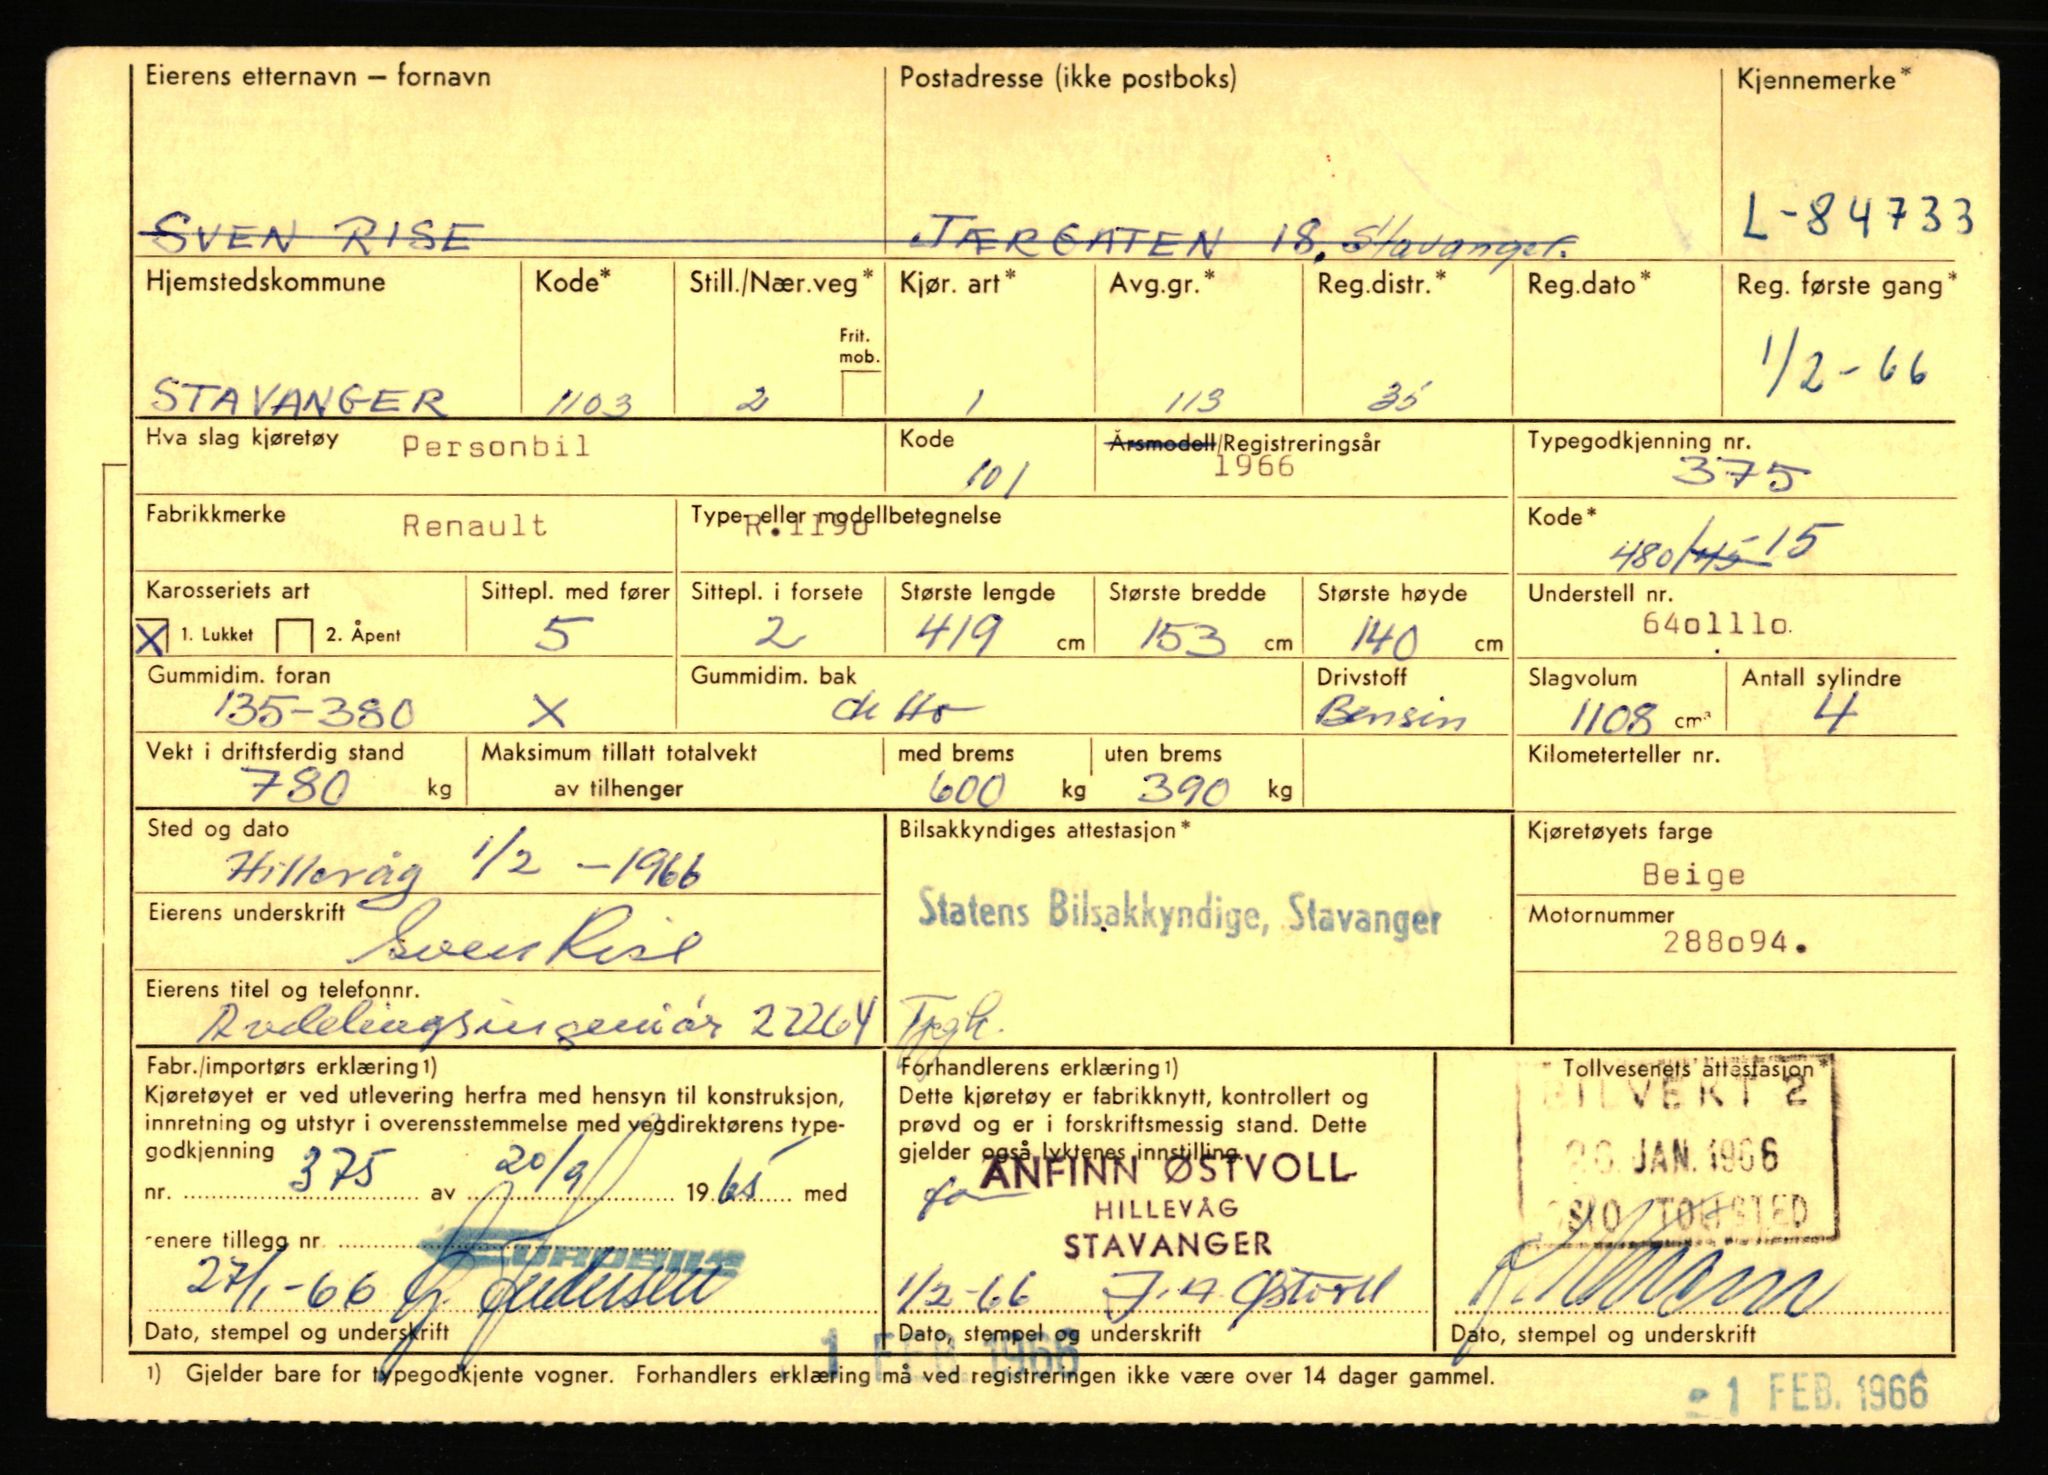 Eierens etternavn – fornavn
Postadresse (ikke postboks)
Kjennemerke*
SVEN RISE
JÆRGATEN 18. Stavanger.
L-84733
Hjemstedskommune
Kode*
Still./Nær.veg*
Kjør. art*
Avg.gr.*
Reg.distr.*
Reg.dato*
Reg. første gang*
Frit.
mob.
STAVANGER
1103
2
1
113
35
1/2-66
Hva slag kjøretøy
Personbil
Kode
101
Årsmodell/Registreringsår
1966
Typegodkjenning nr.
375
Fabrikkmerke
Renault
Type- eller modellbetegnelse
R.1190
Kode*
480/45 15
Karosseriets art
1. Lukket
2. Åpent
X
Sittepl. med fører
5
Sittepl. i forsete
2
Største lengde
419 cm
Største bredde
153 cm
Største høyde
140 cm
Understell nr.
64o111o.
Gummidim. foran
135-380 X
Gummidim. bak
detto
Drivstoff
Bensin
Slagvolum
1108 cm³
Antall sylindre
4
Vekt i driftsferdig stand
780 kg
Maksimum tillatt totalvekt
av tilhenger
med brems
600 kg
uten brems
390 kg
Kilometerteller nr.
Sted og dato
Hillevåg 1/2 -1966
Bilsakkyndiges attestasjon*
Statens Bilsakkyndige, Stavanger
Kjøretøyets farge
Beige
Eierens underskrift
Sven Rise
Motornummer
288o94.
Eierens titel og telefonnr.
Avdelingsingeniør 22264
Fabr./importørs erklæring1)
Kjøretøyet er ved utlevering herfra med hensyn til konstruksjon,
innretning og utstyr i overensstemmelse med vegdirektørens type-
godkjenning
nr. 375 av 20/9 1965 med
senere tillegg nr.
EUROBIL
27/1-66 Andersen
Dato, stempel og underskrift
Forhandlerens erklæring1)
Dette kjøretøy er fabrikknytt, kontrollert og
prøvd og er i forskriftsmessig stand. Dette
gjelder også lyktenes innstilling.
for ANFINN ØSTVOLL
HILLEVÅG
STAVANGER
1/2-66 J. A. Østvoll
Dato, stempel og underskrift
Tollvesenets attestasjon*
BILVEKT 2
26. JAN. 1966
OSLO TOLLSTED
Dato, stempel og underskrift
1 FEB. 1966
1) Gjelder bare for typegodkjente vogner. Forhandlers erklæring må ved registreringen ikke være over 14 dager gammel.
-1 FEB. 1966